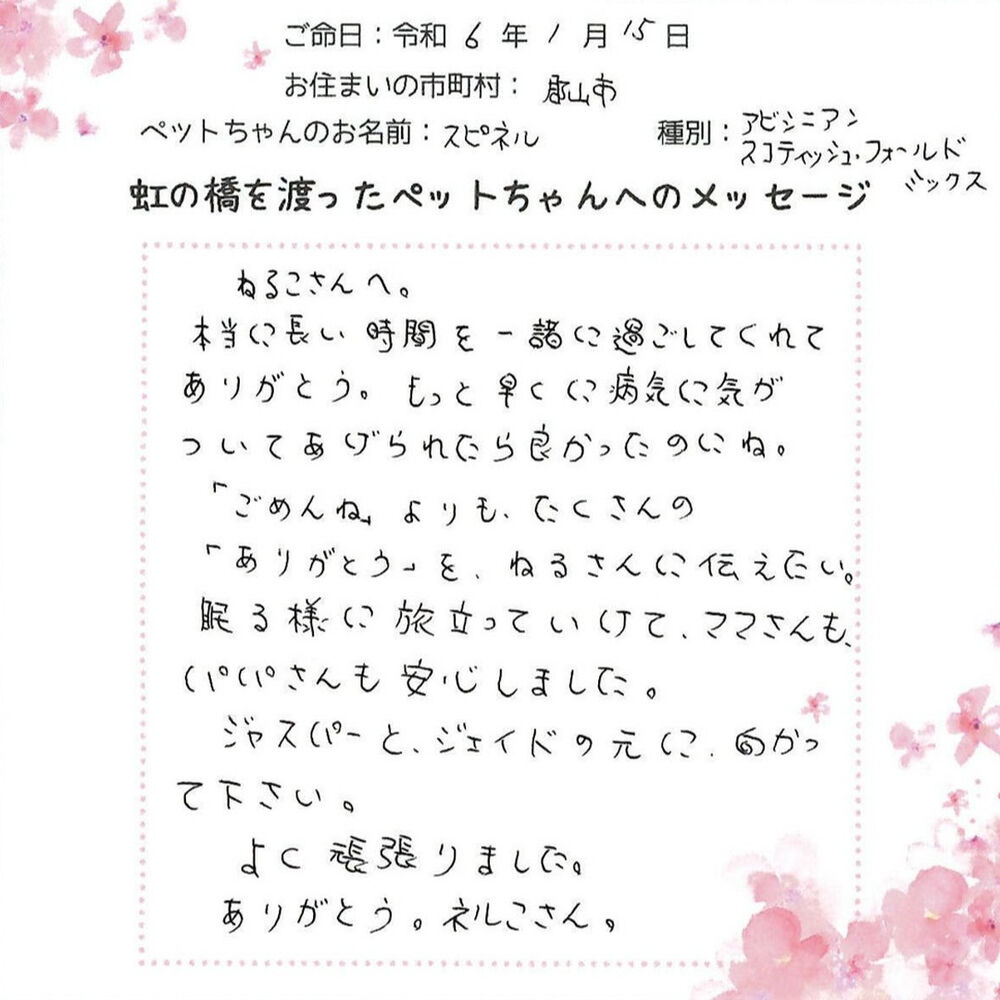 ご命日：令和 6 年 1 月 15 日
お住まいの市町村： 郡山市
ペットちゃんのお名前：スピネル 種別：アビシニアン
スコティッシュ・フォールド
ミックス
虹の橋を渡ったペットちゃんへのメッセージ
ねるこさんへ。
本当に長い時間を一諸に過ごしてくれて
ありがとう。もっと早くに病気に気が
ついてあげられたら良かったのにね。
「ごめんね」よりも、たくさんの
「ありがとう」を、ねるさんに伝えたい。
眠る様に旅立っていけて、ママさんも、
パパさんも安心しました。
ジャスパーと、ジェイドの元に、向かっ
て下さい。
よく頑張りました。
ありがとう。ネルこさん。